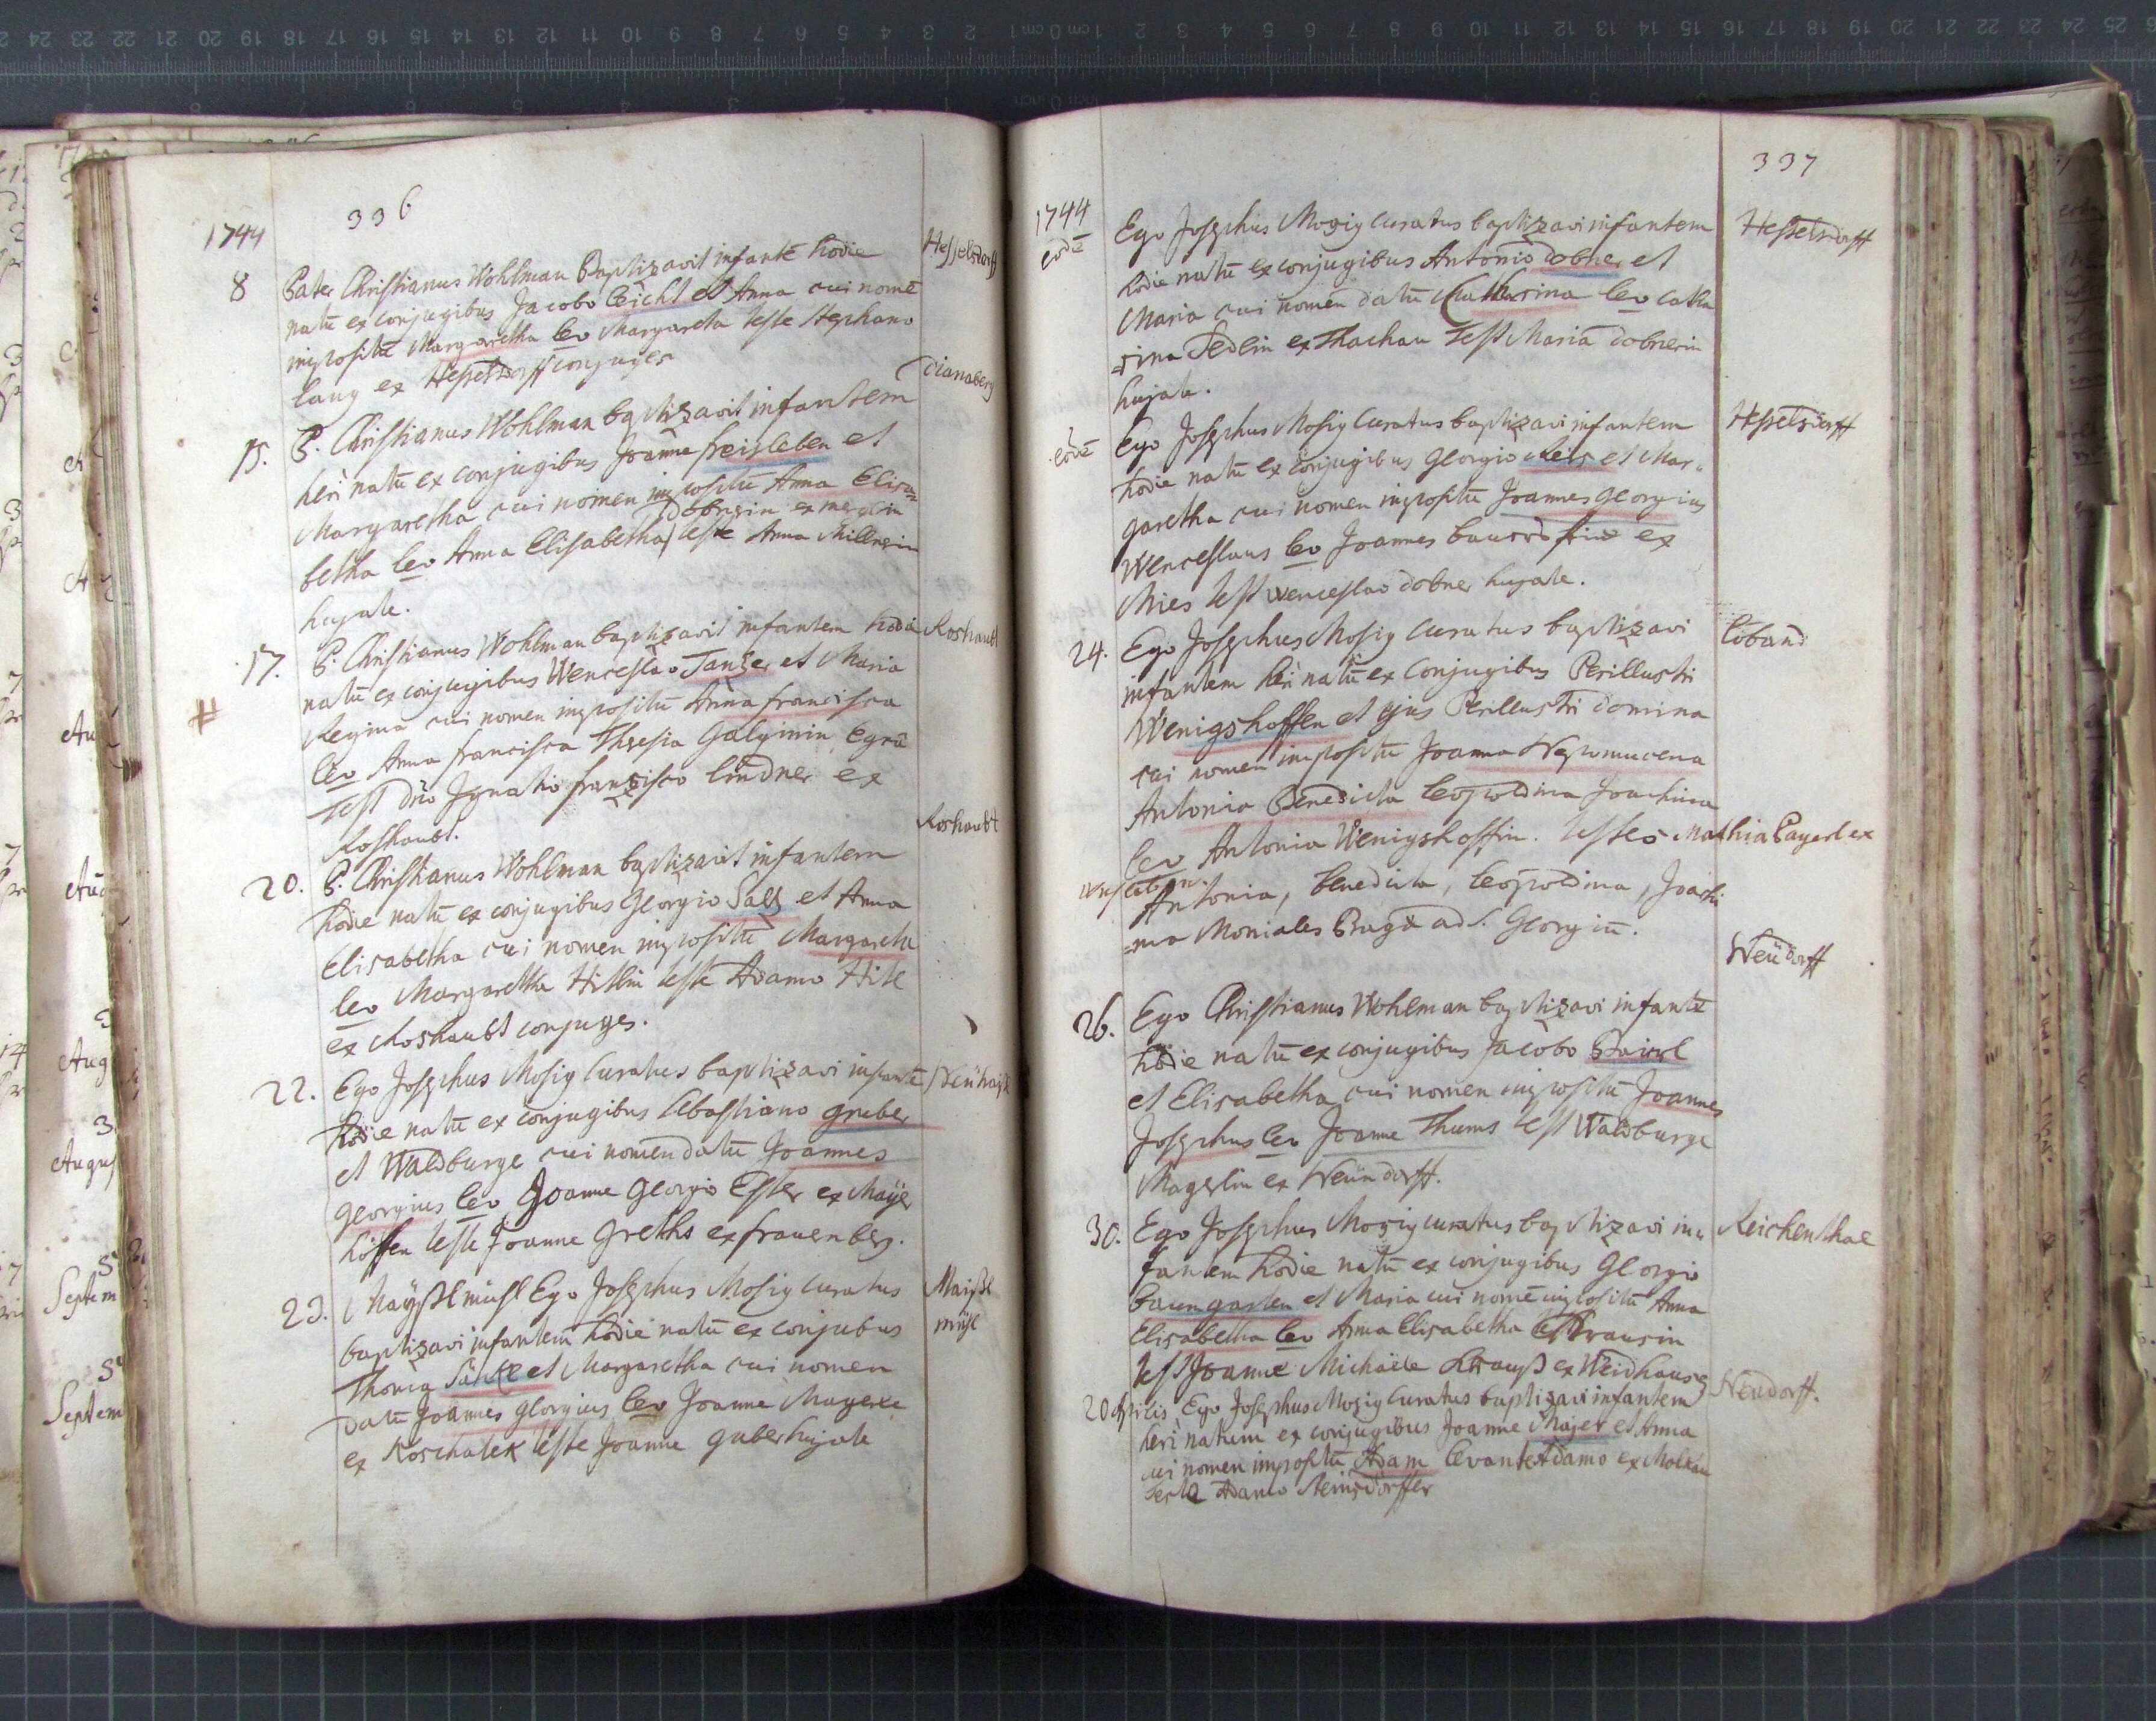 336
1744
Hesselsdorff
8 Pater Christianus Wohlman Baptizavit infantē hodie
natū ex conjugibus Jacobo leicht et Anna cui nomē
impositū Margaretha lev Margareta teste Stephano
lang ex Hesselsdorff conjuges
Dianaberg
15. P. Christianus Wohlman baptizavit infantem
heri natū ex conjugibus Joanne freisleben et
Margaretha cui nomen impositū Anna Elisa=
Dobnerin ex
betha lev Anna Elisabetha teste Anna Millnerin
hujate.
Roshaubt
17. P. Christianus Wohlman baptizavit infantem hodie
natū ex conjugibus Wenceslao Tanzer et Maria
Regina cui nomen impositū Anna francisca
lev Anna francisca Theresia Galginin Egrā
Test dño Ignatio francisco lindner ex
Roshaubt.
Roshaubt
20. P. Christianus Wohlman baptizavit infantem
hodie natū ex conjugibus Georgio Salz et Anna
Elisabetha cui nomen impositū Margaretha
lev Margaretha Hitlin teste Adamo Hitl
ex Roshaubt conjuges.
Neuhaÿsl
22. Ego Josephus Mosig Curatus baptizavi infantē
hodie natū ex conjugibus Sebastiano gruber
et Waldburge cui nomen datū Joannes
georgius lev Joanne georgio Esler ex Maÿer
höffen teste Joanne Greths ex frauenberg.
Maißl
mühl
23. Maÿßlmühl Ego Josephus Mosig Curatus
baptizavi infantem hodie natū ex conjubus
Thoma et Margaretha cui nomen
datū Joannes georgius lev Joanne Mayerle
ex Koschatek teste Joanne guber hujate
337
1744
eodē Ego Josephus Mosig Curatus baptizavi infantem
Hesselsdorff
hodie natū ex conjugibus Antonio dobner et
Maria cui nomen datū Catharina lev catha
=rina Sedlin ex Thachau Test Maria dobnerin
hujate.
eodē Ego Josephus Mosig Curatus baptizavi infantem
Hesselsdorff
hodie natū ex conjugibus georgio Reis et Mar=
garetha cui nomen impositū Joannes georgius
Wenceslaus lev Joannes ex
Mies test wenceslao dobner hujate.
24. Ego Josephus Mosig Curatus baptizavi
loband
infantem heri natū ex Conjugibus Perillustri
Wenigshoffen et ejus Perillustri domina
cui nomen impositū Joanna Nepomucena
Antonia Benedicta leopoldina Joachima
lev Antonia Wenigshoffin. testes Mathia Payerl ex
Antonia, benedicta, leopoldina, Joachi
=ma Moniales Pragæ ad S. Georgiū.
Neüdorff
26. Ego Christianus Wohlman baptizavi infantē
hodie natū ex conjugibus Jacobo Bairl
et Elisabetha cui nomen impositū Joannes
Josephus lev Joanne Thums test Waldburge
Magerlin ex Neündorff.
30. Ego Josephus Mosig curatus baptizavi in=
Reichenthal
fantem hodie natū ex conjugibus Georgio
baumgarten et Maria cui nomē impositū Anna
Elisabetha lev Anna Elisabetha Krausin
test Joanne Michaele Krauß ex Weidhaus
20 Aprilis Ego Josephus Mosig Curatus baptizavi infantem
Neudorff.
heri natum ex conjugibus Joanne Majer et Anna
cui nomen impositū Adam levante Adamo ex
teste Adamo Reinsdorffer